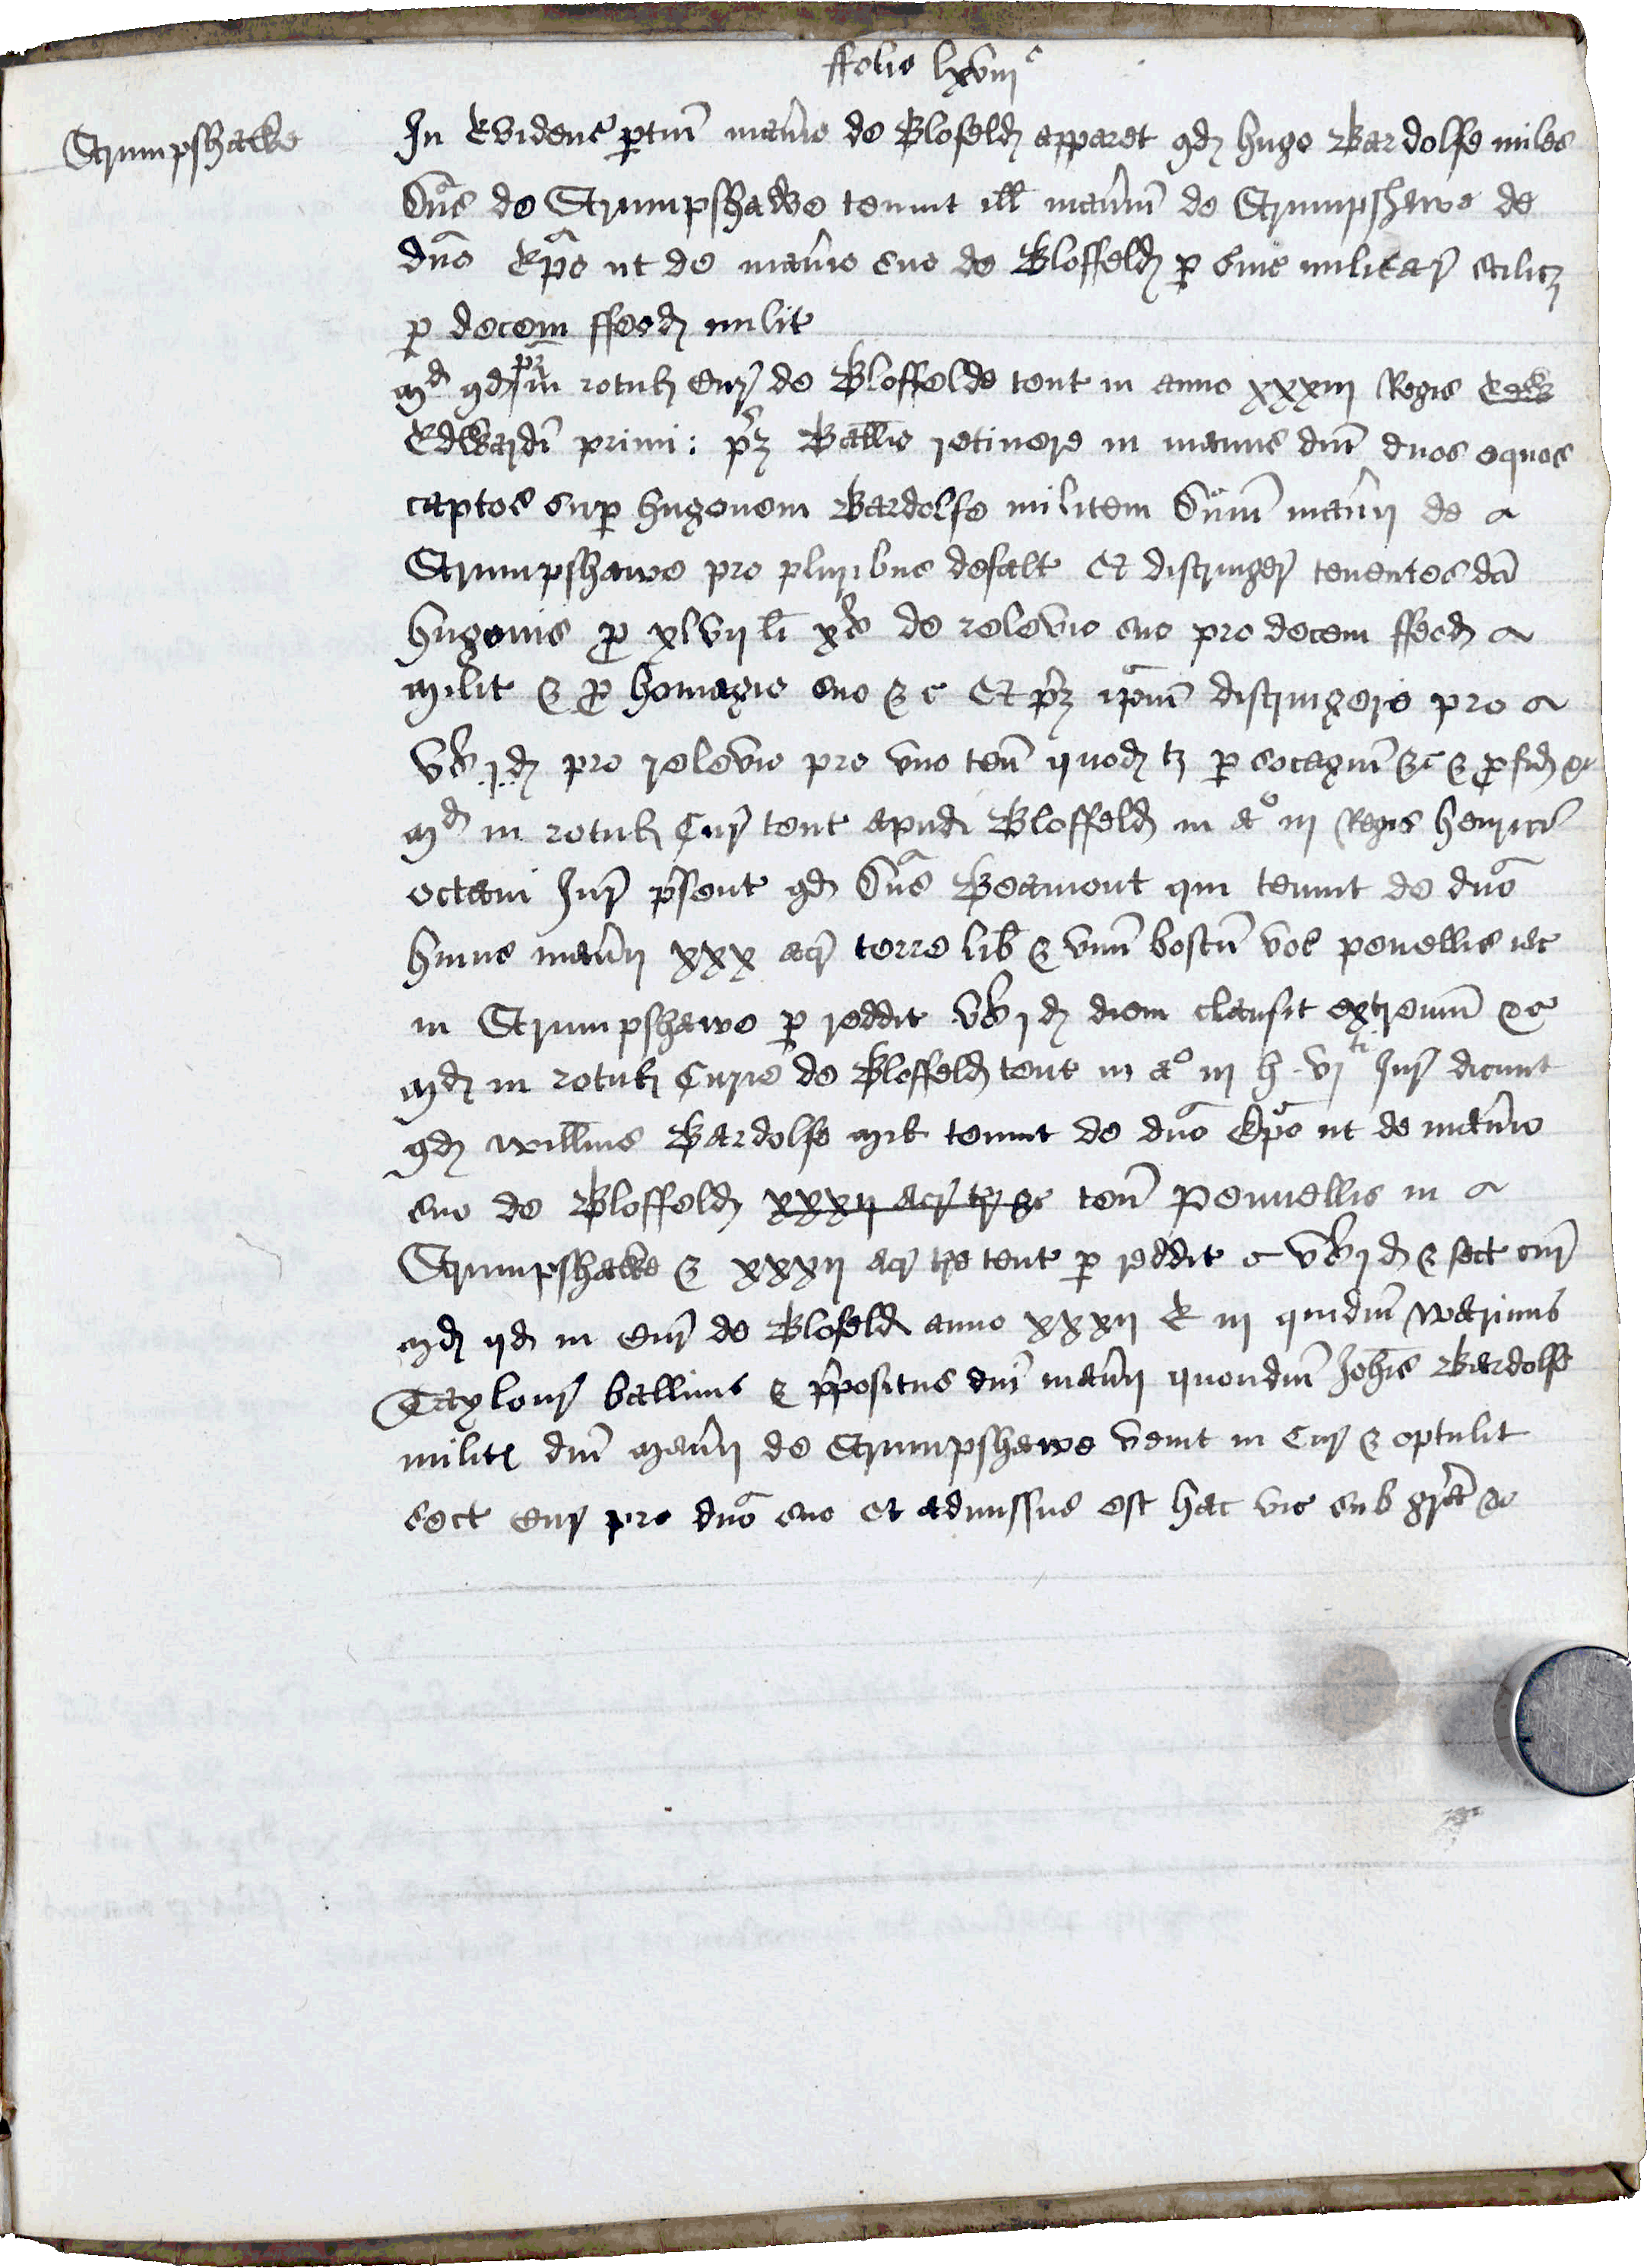 ffolio lxviij
Strumpshawe
In Evidenc ptin man'io de Blofeld apparet qd hugo Bardolfe miles
dns de Strumpshawe tenuit ill man'iu de Strumpshawe de
dno Epo ut de man'io suo de Bloffeld p svic militar scilicz
p decem ffeod milit
Md qd in rotul Cur de Bloffelde tent in anno xxxiij Regis Edw
Edwardi primi : prz Ballio retinere in manus dni duos equos
captos sup hugonem Bardolfe militem dnm man'ij de
Strumpshawe pro pluribus defalt Et distringer tenentes dci
hugonis p xlvij li xs de relevio suo pro decem ffeod
milit & p homagio suo &c Et prz ipm distringere pro
vs jd pro relevio pro uno ten quod tz p socagiu &c & p fid &c
Md in rotul Cur tent apud Bloffeld in ao iij Regis henrici
octavi Jur psent qd dns Beamont qui tenuit de dno
huius man'ij xxx acr terre lib & unu boscu voc penellis iac
in Strumpshawe p reddit vs jd diem clausit extremu &c
Md in rotul Curie de Bloffeld tent in ao iij h vjti Jur dicunt
qd willms Bardolfe mil tenuit de dno Epo ut de man'io
suo de Bloffeld xxxij acr tr &c ten Pennellis in
Strumpshawe & xxxij acr tre tent p reddit vs jd & sect cur
Md qd in cur de Blofeld anno xxxij E iij quidm Warinus
Taylour ballius & ppositus dni man'ij quondm Johis Bardolfe
milit dni man'ij de Strumpshawe venit in Cur & optulit
sect cur pro dno suo Et admissus est hac vic sub gra &c